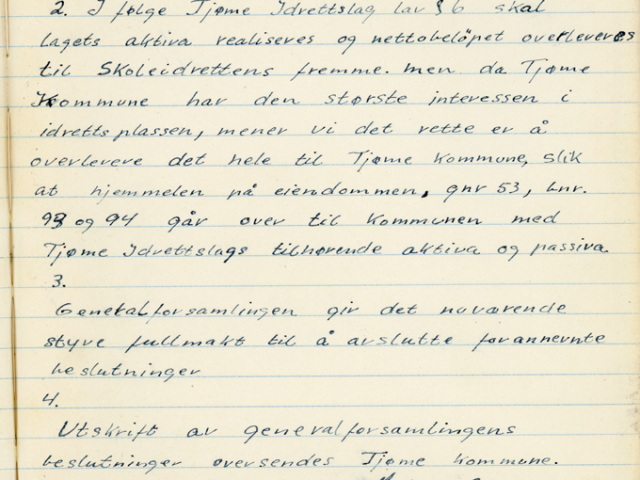 2. I følge Tjøme Idrettslag lav § 6 skal
lagets aktiva realiseres og nettobeløpet overleveres
til Skoleidrettens fremme. Men da Tjøme
Kommune har den største interessen i
idrettsplassen, mener vi det rette er å
overlevere det hele til Tjøme Kommune, slik
at hjemmelen på eiendommen, gnr 53, bnr.
93 og 94 går over til Kommunen med
Tjøme Idrettslags tilhørende aktiva og passiva
3.
Generalforsamlingen gir det nuværende
styre fullmakt til å avslutte forannevnte
beslutninger
4.
Utskrift av generalforsamlingens
beslutninger oversendes Tjøme Kommune.